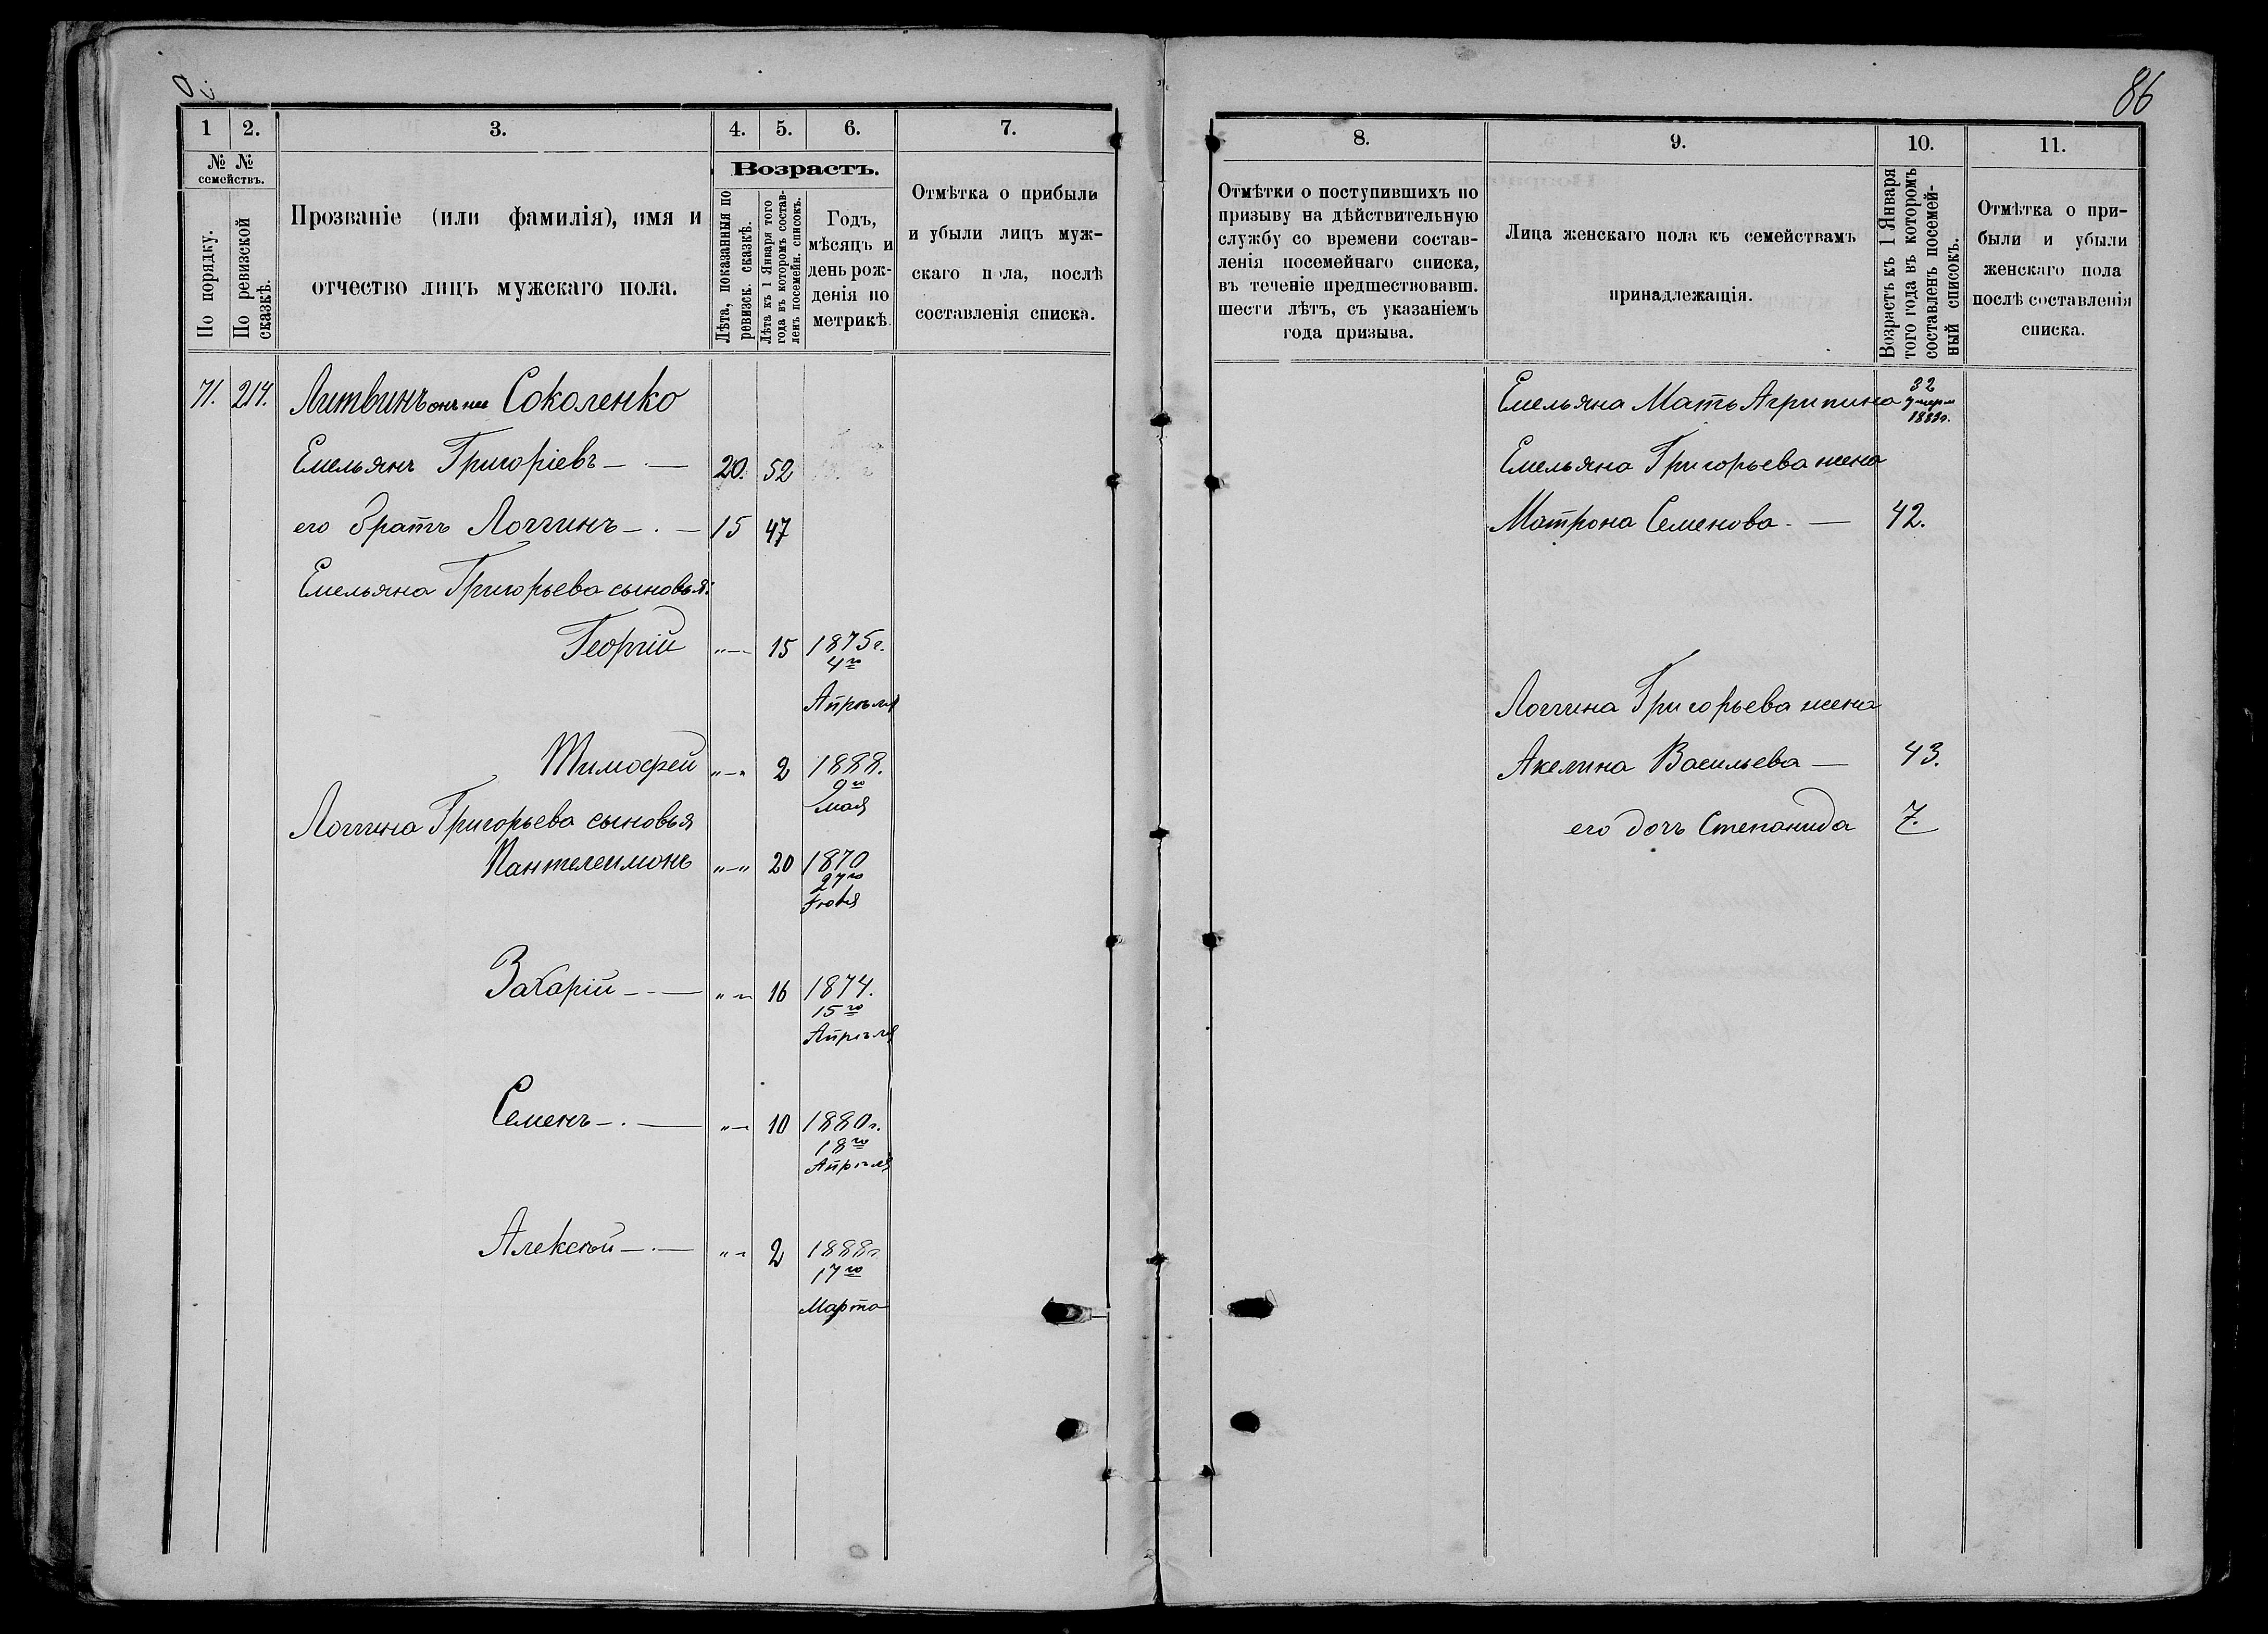 86
1
2.
3.
4.
5.
6.
7.
№ №
семействъ.
По порядку.
По ревизской
сказкѣ.
Прозваніе (или фамилія), имя и
отчество лицъ мужскаго пола.
Возрастъ.
Лѣта, показанныя по
ревизск. сказкѣ.
Лѣта къ 1 Января того
года въ которомъ состав-
ленъ посемейн. списокъ.
Годъ,
мѣсяцъ и
день рож-
денія по
метрикѣ.
Отмѣтка о прибыли
и убыли лицъ муж-
скаго пола, послѣ
составленія списка.
71. 214. Литвинъ онъ же Соколенко
Емельянъ Григоріевъ — . — 20. 52
его братъ Логгинъ — . — 15 47
Емельяна Григорьева сыновья:
Георгій „—„ 15 1875 г.
4го
Апрѣля
Тимофей „—„ 2 1888.
9го
мая
Логгина Григорьева сыновья
Пантелеимонъ „—„ 20 1870
27го
Захарій — „—„ 16 1874.
15го
Апрѣля
Семенъ — . — „—„ 10 1880 г.
18го
Апрѣля
Алексѣй — . — „—„ 2 1888 г.
17го
Марта
8.
9.
10.
11.
Отмѣтки о поступившихъ по
призыву на дѣйствительную
службу со времени состав-
ленія посемейнаго списка,
въ теченіе предшествовавш.
шести лѣтъ, съ указаніемъ
года призыва.
Лица женскаго пола къ семействамъ
принадлежащія.
Возрастъ къ 1 Января
того года въ которомъ
составленъ посемей-
ный списокъ.
Отмѣтка о при-
были и убыли
женскаго пола
послѣ составленія
списка.
Емельяна Мать Агрипина 32
Емельяна Григорьева жена
Матрона Семенова. — 42.
Логгина Григорьева жена
Акелина Васильева — 43.
его дочь Степанида 7.